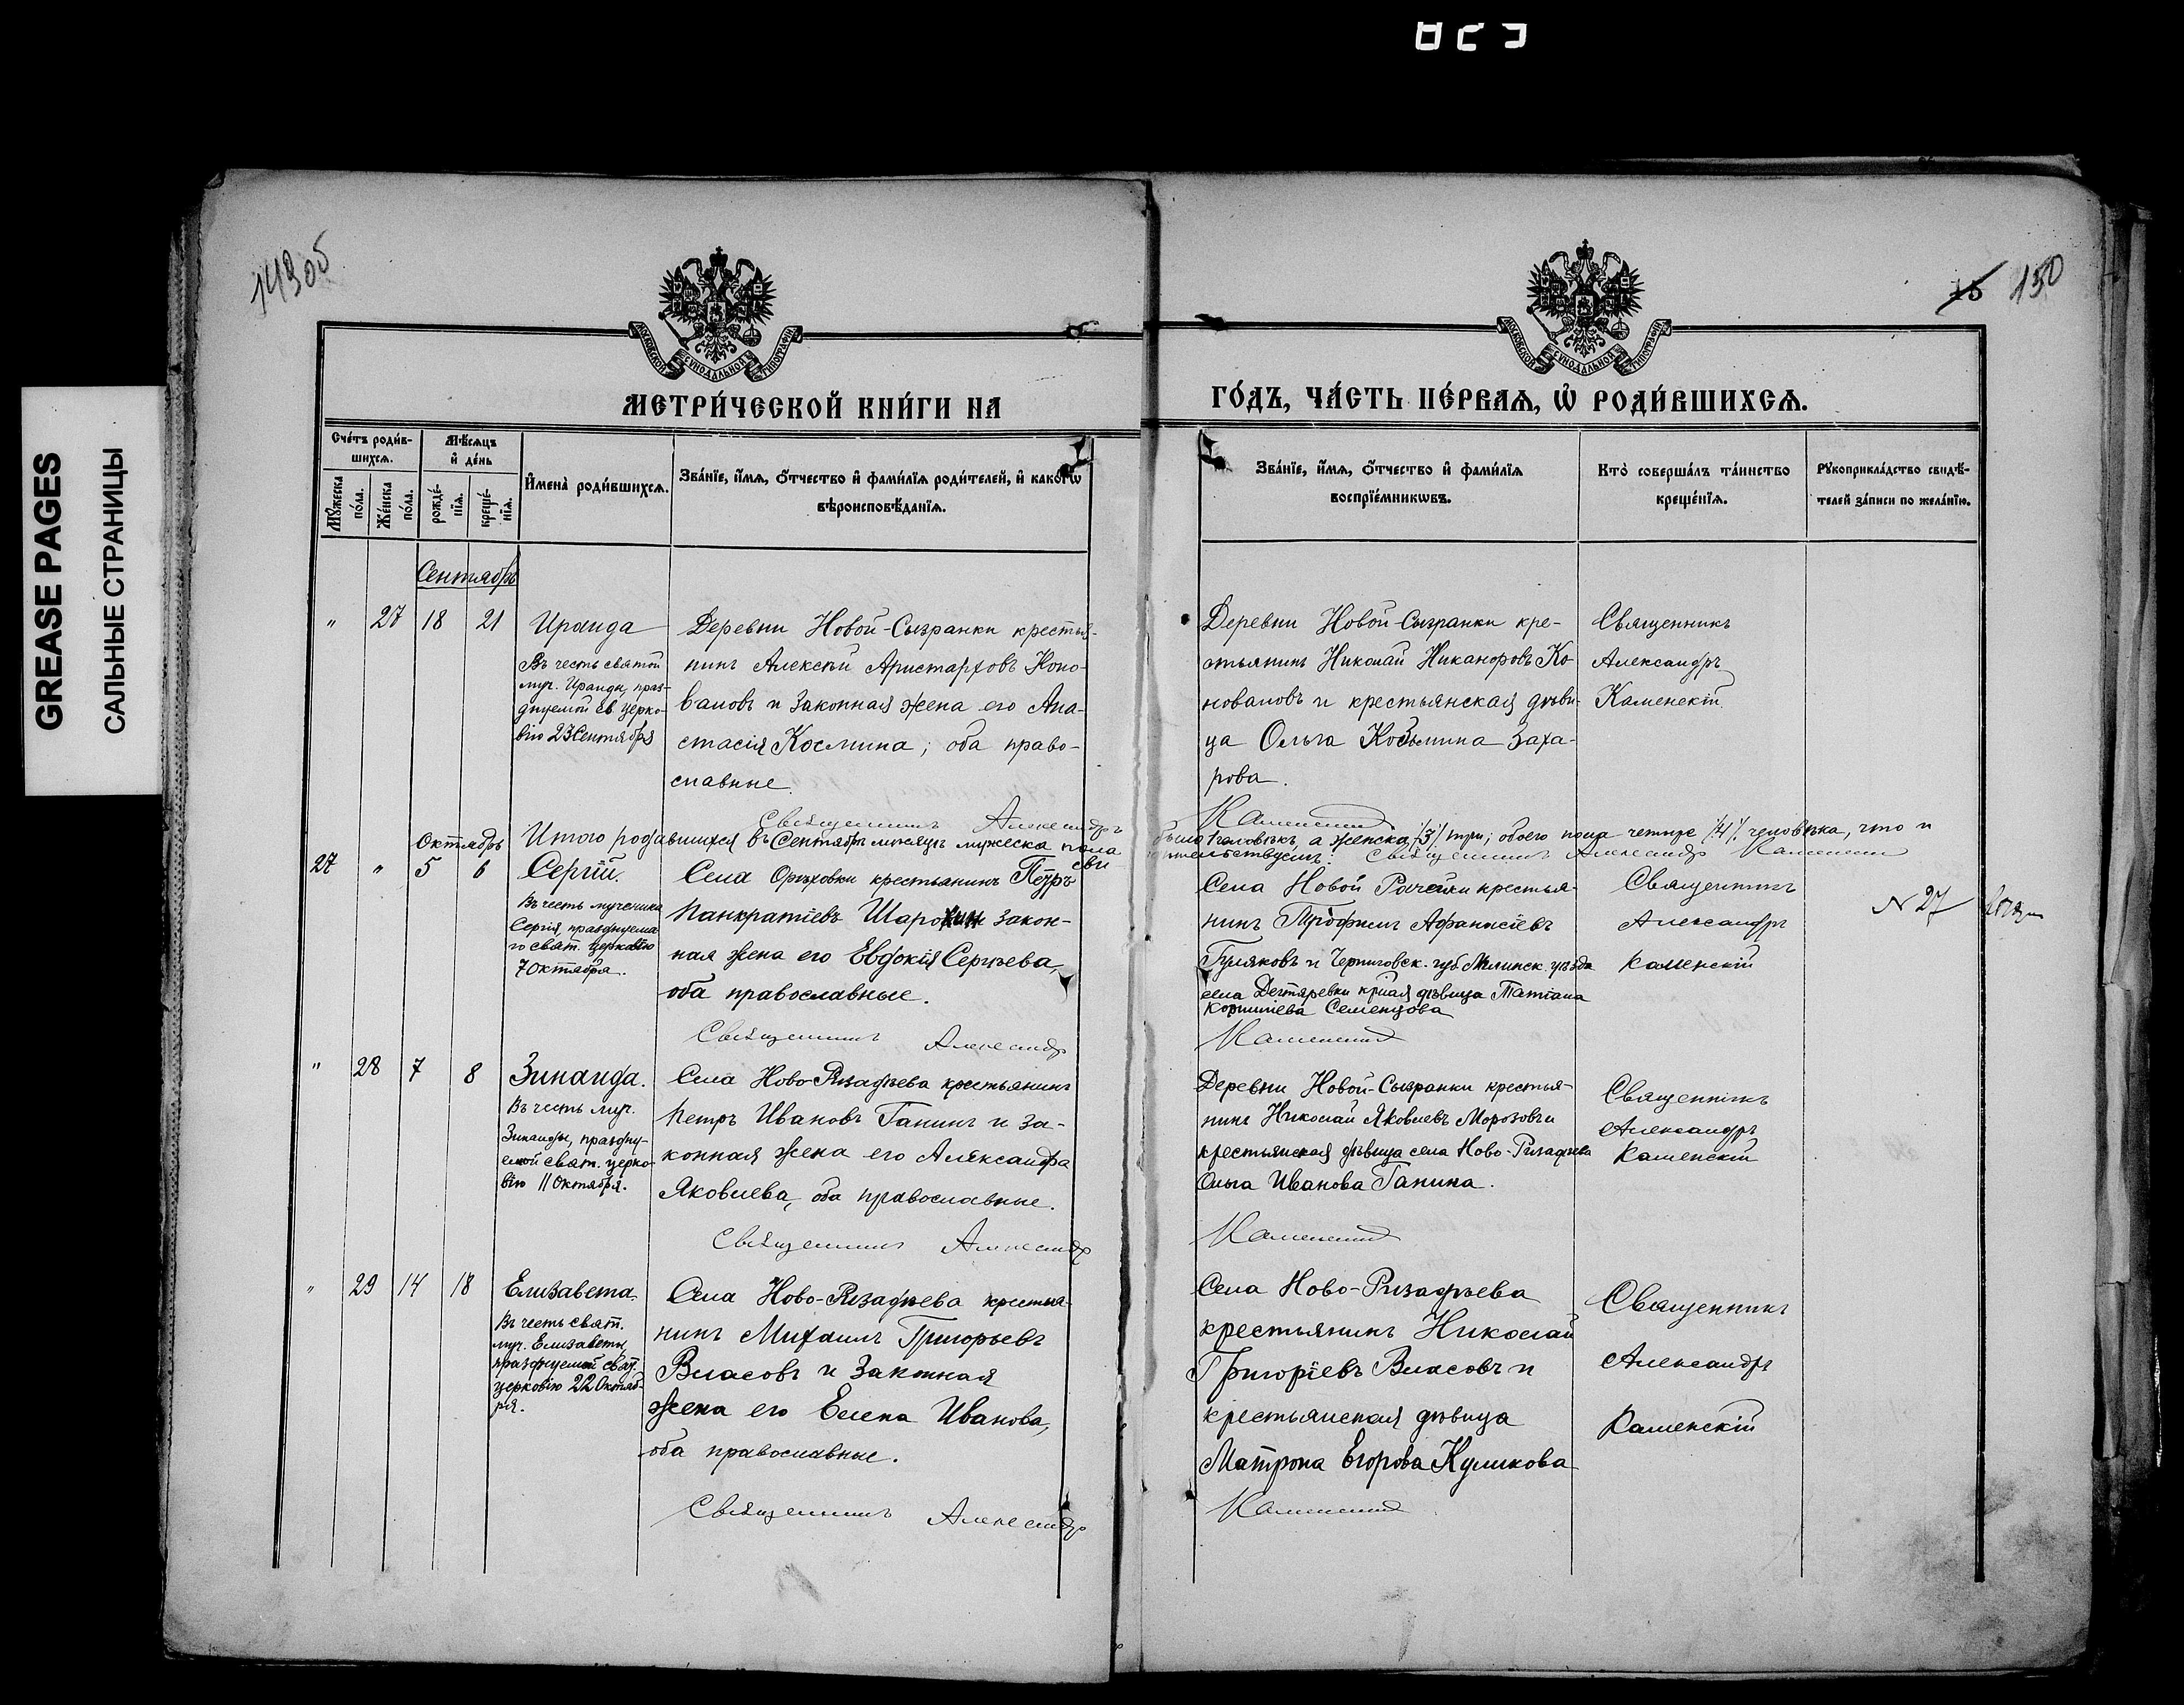 GREASE PAGES
САЛЬНЫЕ СТРАНИЦЫ
149об
150
МОСКОВСКОЙ СѴНОДАЛЬНОЙ ТИПОГРАФІИ
МОСКОВСКОЙ СѴНОДАЛЬНОЙ ТИПОГРАФІИ
МЕТРИ́ЧЕСКОЙ КНИ́ГИ НА
ГО́ДЪ, ЧА́СТЬ ПЕ́РВАѦ, Ѡ҆ РОДИ́ВШИХСѦ.
Сче́тъ роди́в-
шихсѧ.
Мѣ́сѧцъ
и҆ де́нь
Мꙋ́жеска
по́ла.
Же́нска
по́ла.
рожде́-
нїѧ.
креще́-
нїѧ.
И҆мена̀ роди́вшихсѧ.
Зва́нїе, и҆́мѧ, ѻ҆́тчество и҆ фами́лїѧ роди́телей, и҆ како́гѡ
вѣроисповѣ́данїѧ.
Зва́нїе, и҆́мѧ, ѻ҆́тчество и҆ фами́лїѧ
воспрїе́мникѡвъ.
Кто̀ соверша́лъ та́инство
креще́нїѧ.
Рꙋкоприкла́дство свидѣ́-
телей за́писи по жела́нїю.
Сентябрь
" 27 18 21
Ираида
Въ честь святой
муч. Ираиды, праз-
днуемой св. церко-
вію 23 Сентября
Деревни Новой-Сызранки крестья-
нинъ Алексѣй Аристарховъ Коно-
валовъ и законная жена его Ана-
стасія Космина; оба право-
славные.
Деревни Новой-Сызранки кре-
стьянинъ Николай Никаноровъ Ко-
новаловъ и крестьянская дѣви-
ца Ольга Козьмина Заха-
рова.
Священникъ
Александръ
Каменскій
Священникъ Александръ
Каменскій
Итого родившихся въ Сентябрѣ мѣсяцѣ мужеска пола
было 1 человѣкъ, а женска /3/ три; обоего пола четыре /4/ человѣка, что и
сви
дѣтельствуемъ: Священникъ Александръ Каменскій
Октябрь
27 " 5 6
Сергій.
Въ честь мученика
Сергія, празднуема-
го свят. церковію
7 Октября.
Села Орѣховки крестьянинъ Петръ
Панкратіевъ Шарохин закон-
ная жена его Евдокія Сергѣева,
оба православные.
Села Новой Рачейки крестья-
нинъ Трофимъ Афанасіевъ
Гуляковъ и Черниговск. губ. Мглинск. уѣзда
села Дегтяревки кр‑ая дѣвица Татіана
Корниліева Семенцова
Священникъ
Александръ
Каменскій
N 27
Священникъ Александръ
Каменскій
" 28 7 8
Зинаида.
Въ честь муч.
Зинаиды, праздну-
емой свят. церко-
вію 11 Октября.
Села Ново-Ризадѣева крестьянинъ
Петръ Ивановъ Ганинъ и за-
конная жена его Александра
Яковлева, оба православные.
Деревни Новой-Сызранки крестья-
нинъ Николай Яковлевъ Морозовъ и
крестьянская дѣвица села Ново-Ризадѣева
Ольга Иванова Ганина.
Священникъ
Александръ
Каменскій
Священникъ Александръ
Каменскій
" 29 14 18
Елизавета.
Въ честь свят.
муч. Елизаветы,
празднуемой свят.
церковію 22 Октяб-
ря.
Села Ново-Ризадѣева крестья-
нинъ Михаилъ Григорьевъ
Власовъ и законная
жена его Елена Иванова,
оба православные.
Села Ново-Ризадѣева
крестьянинъ Николай
Григоріевъ Власовъ и
крестьянская дѣвица
Матрона Егорова Куликова
Священникъ
Александръ
Каменскій
Священникъ Александръ
Каменскій